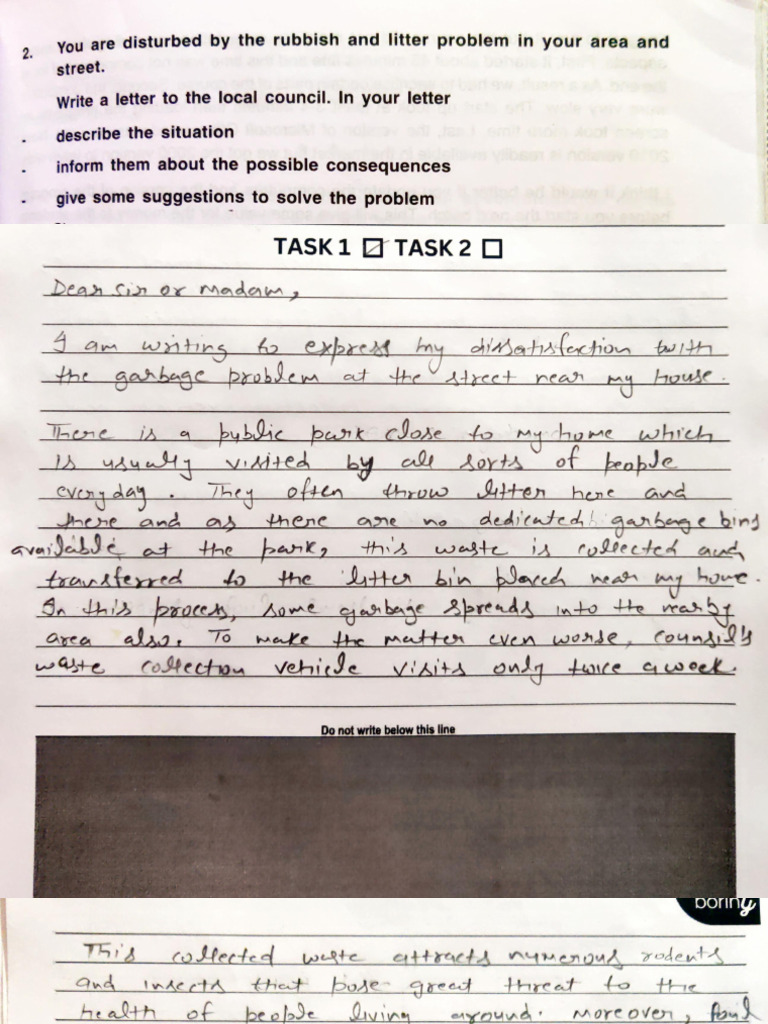 2. You are disturbed by the rubbish and litter problem in your area and
street.
Write a letter to the local council. In your letter
. describe the situation
. inform them about the possible consequences
. give some suggestions to solve the problem
TASK 1 ☑ TASK 2 ☐
Dear Sir or Madam,
I am writing to express my dissatisfaction with
the garbage problem at the street near my house.
There is a public park close to my home which
is usually visited by all sorts of people
everyday. They often throw litter here and
there and as there are no dedicated garbage bins
available at the park, this waste is collected and
transferred to the litter bin placed near my house.
In this process, some garbage spreads into the nearby
area also. To make the matter even worse, counsil's
waste collection vehicle visits only twice a week.
Do not write below this line
boring
This collected waste attracts numerous rodents
and insects that pose great threat to the
health of people living around. Moreover, foul